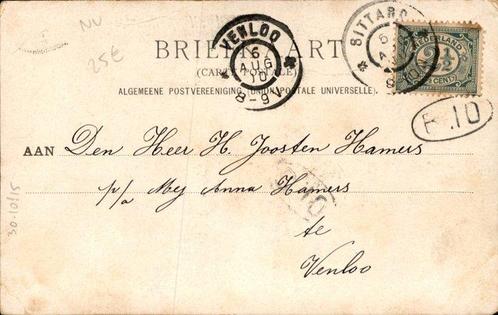 NV
25€
BRIEFKAART
(CARTE POSTALE)
ALGEMEENE POSTVEREENIGING (UNION POSTALE UNIVERSELLE).
VENLOO
6
AUG
00
8-9
SITTARD
6
NEDERLAND
2½
CENT
AAN Den Heer H. Joosten Hamers
p/a Mej Anna Hamers
te
Venloo
30-10/15